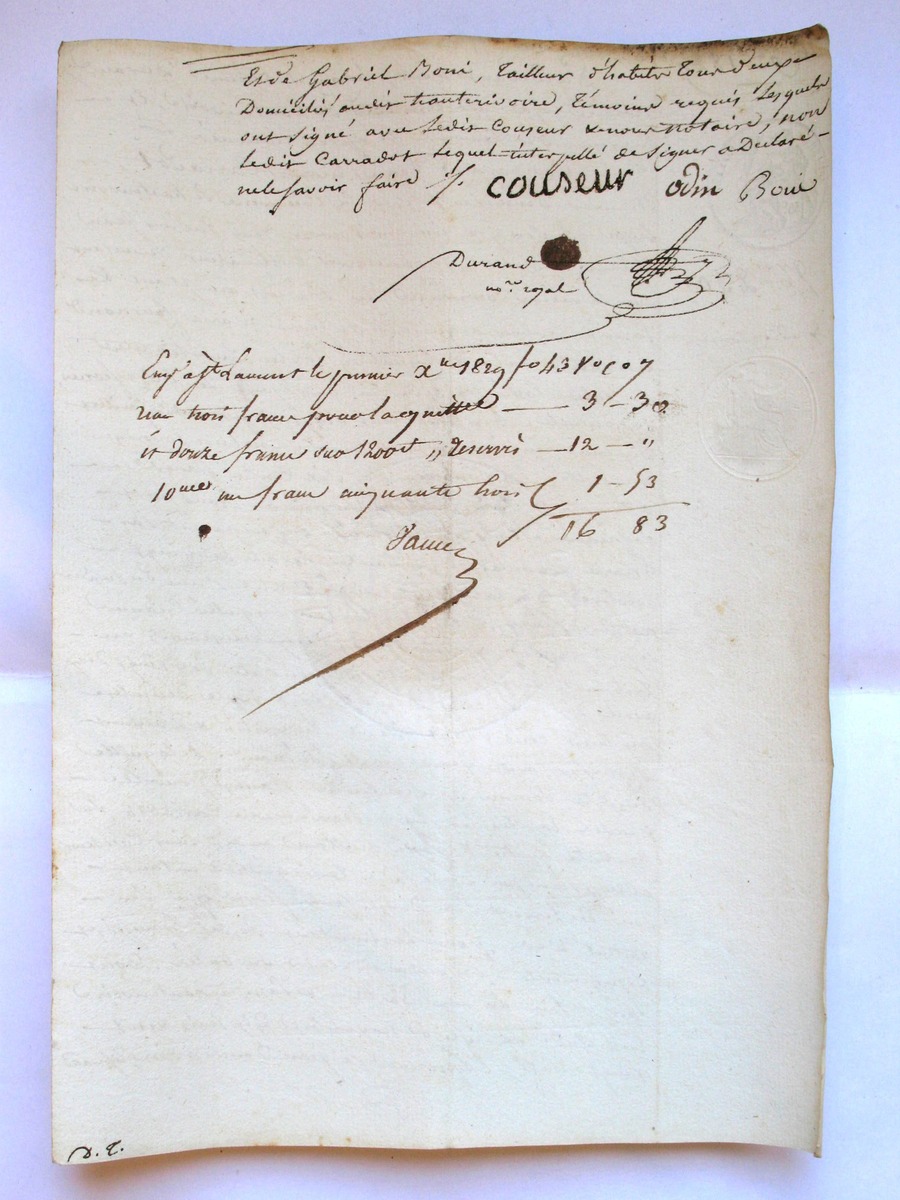 Et de Gabriel Boui, Tailleur d'habits Tous deux
Domiciliés audit hauterivoire, témoins requis Lesquels
ont signé avec Ledit Couseur & nous notaire, non
Ledit Carradot Lequel interpellé de signer a Déclaré
ne le savoir faire ./.
couseur odin Boui
Durand
no.re royal
Enr. à St Laurent le premier Xbre 1829 fo 43 Vo Co 7
reçu trois francs pour la quittce — 3 – 30
et douze francs sur 1200 f „ réservés — 12 – „
10ieme un franc cinquante trois C 1 – 53
16 83
D. T.